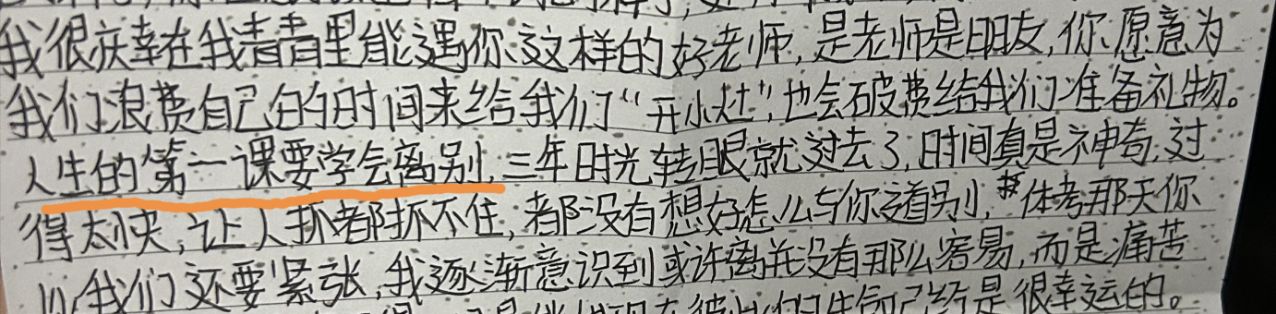 我很庆幸在我青春里能遇你这样的好老师,是老师是朋友,你愿意为
我们浪费自己的时间来给我们“开小灶”,也会破费给我们准备礼物。
人生的第一课要学会离别,三年时光转眼就过去了,时间真是神奇,过
得太快,让人抓都抓不住,都没有想好怎么与你道别,体考那天你
比我们还要紧张,我逐渐意识到或许离并没有那么容易,而是痛苦
已经是很幸运的。